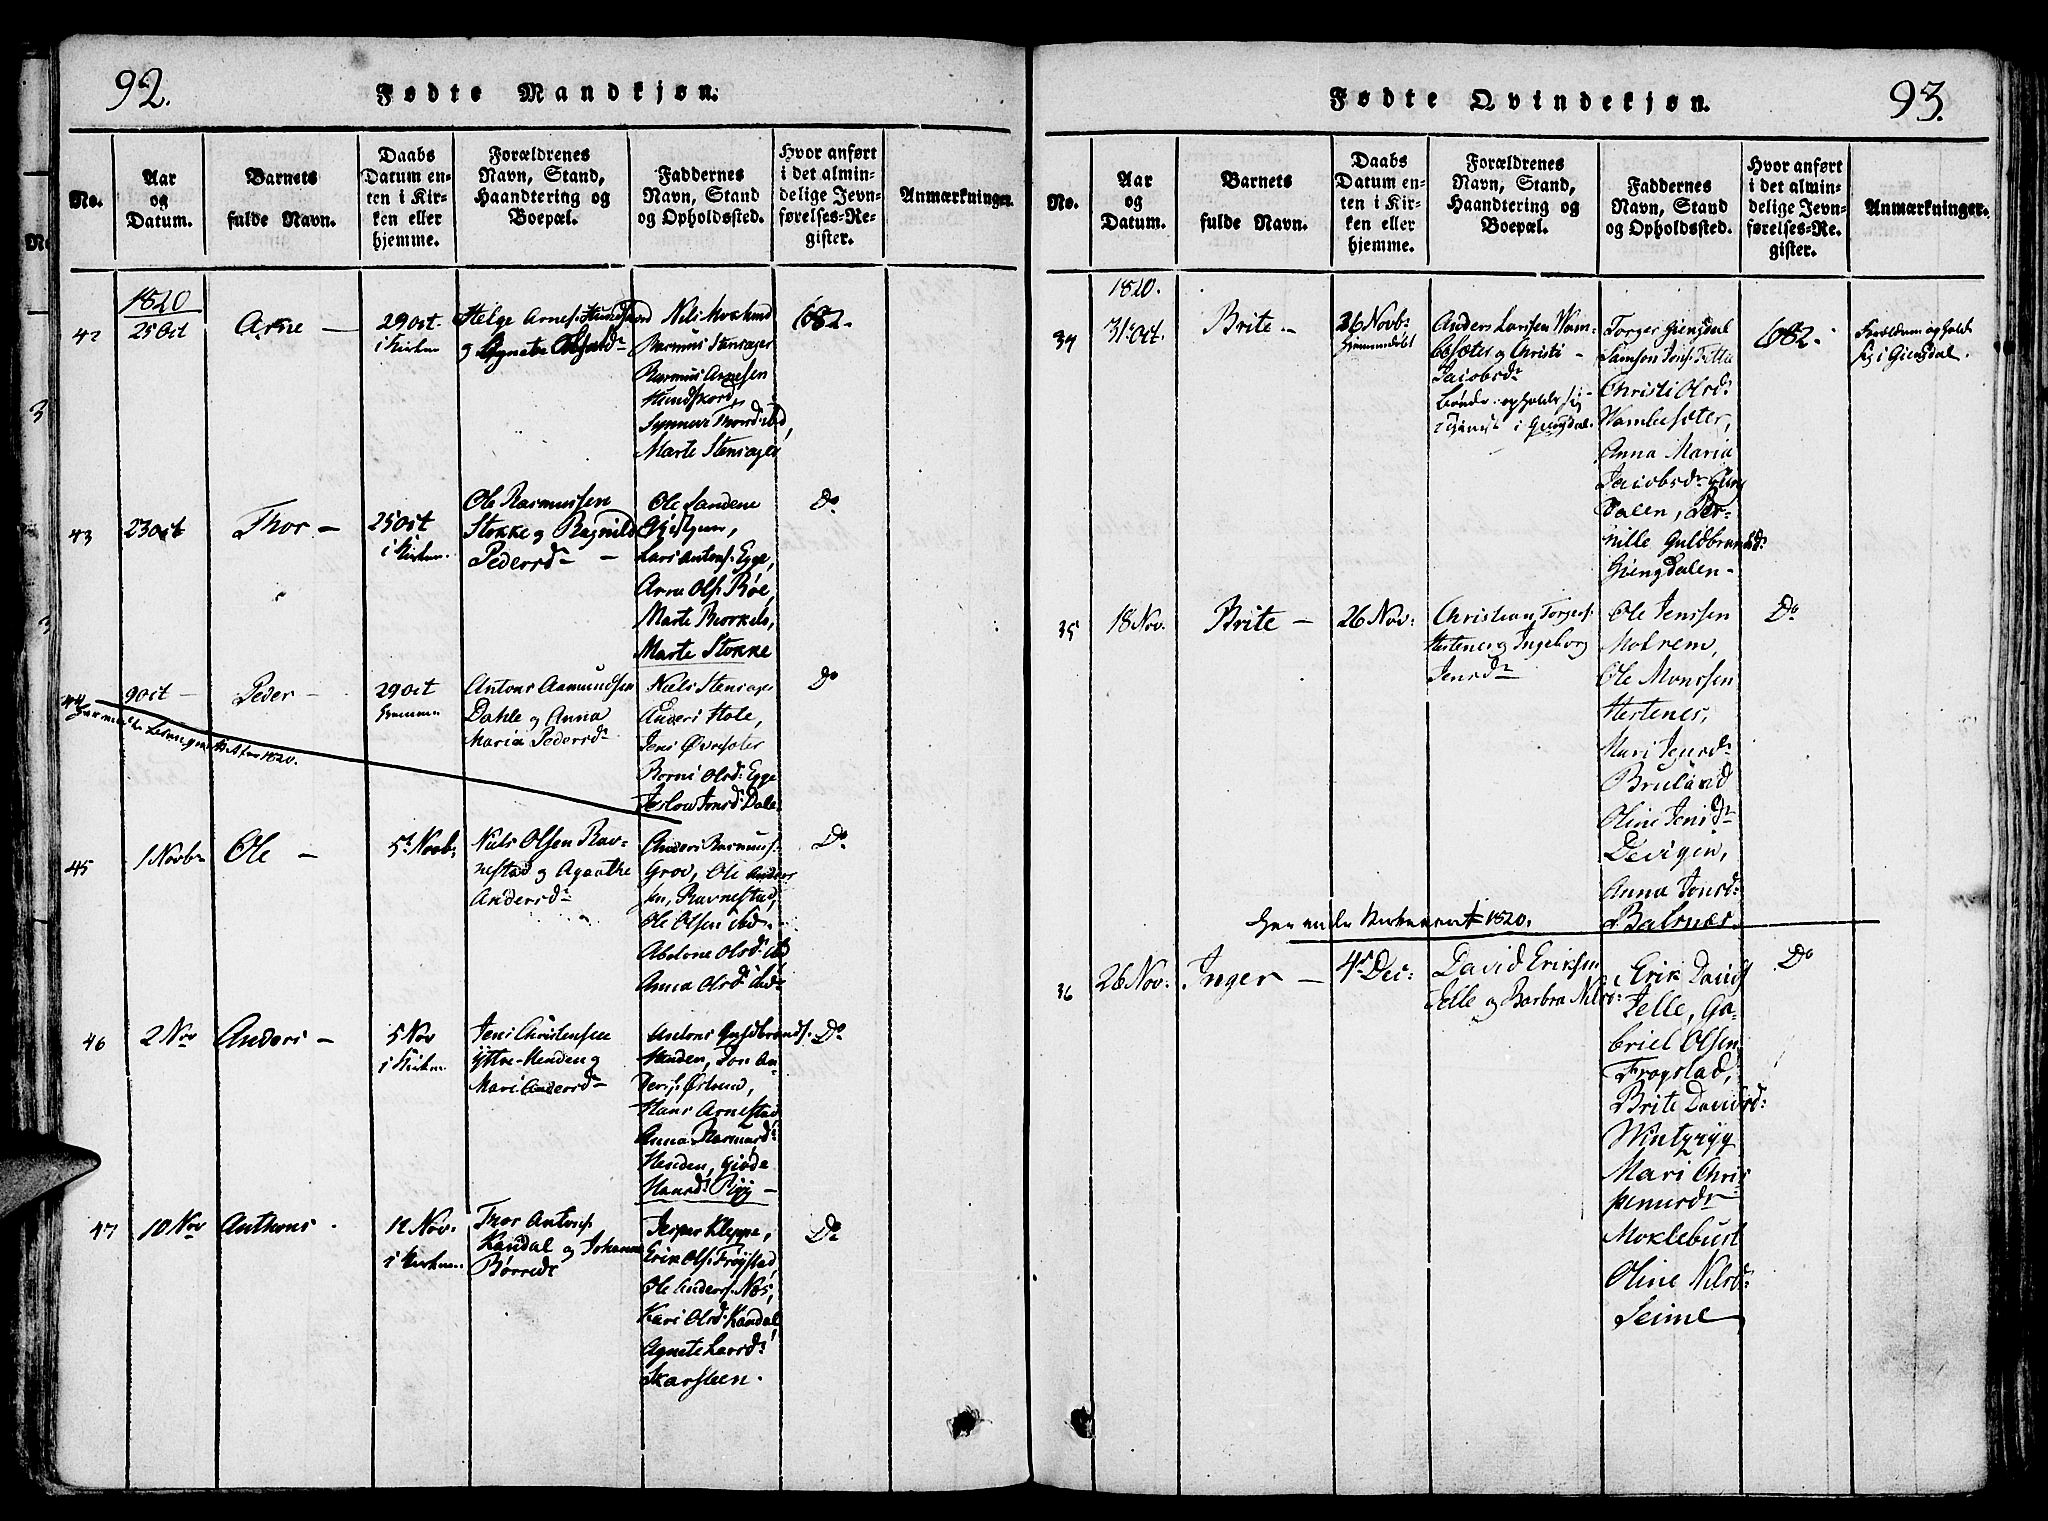 92.
Fødte Mandkjøn.
No.
Aar
og
Datum.
Barnets
fulde Navn.
Daabs
Datum en-
ten i Kir-
ken eller
hjemme.
Forældrenes
Navn, Stand,
Haandtering og
Boepæl.
Faddernes
Navn, Stand
og Opholdssted.
Hvor anført
i det almin-
delige Jevn-
førelses-Re-
gister.
Anmærkninger.
1820
42
25 Oct
Arne —
29 Oct.
i Kirken
Helge Arnes:
og Agnete
Niels
Rasmus Stensager
Rasmus Arnesen
Hundskord,
Synneve Thord: ibid,
Marte Stensager
682.
43
23 Oct
Thor —
25 Oct
i Kirken
Ole Rasmussen
Stokke og Ragnild
Pedersdr —
Ole Sandene
Lars Antons: Egge,
Arne Ols: Røe,
Marte Biorkelo,
Marte Stokke
Do
44
9 Oct —
Peder —
29 Oct
hiemme
Antons Aamundsen
Dahle og Anna
Maria Pedersdr
Niels Stensager
Anders Hole,
Jens Øvrsæter
Berni Olsd: Egge
Jonsd: Dale
Do
1820.
45
1 Novbr
Ole —
5te Novb:
Niels Olsen Rav-
nestad og Agaathe
Andersdr
Anders Rasmuss:
Grov, Ole Anders
sen, Ravnestad,
Ole Olsen ibd.
Abelone Olsd: ibd
Anna Olsd: ibd:
Do
46
2 Nov
Anders —
5 Nov
i Kirken
Jens Christensen
Yttre-Henden og
Mari Andersdr
Antons Guldbrands:
Henden, Jon An-
ders: Østrem,
Hans Arnestad
Anna Rasmusdr
Henden, Giøde
Hansd: Ryg —
Do
47
10 Nov
Anthons.
12 Nov.
i Kirken.
Thor Antons:
Kandal og Johanne
Børresd:
Jesper Kleppe,
Erik Ols: Frøystad,
Ole Anders: Nes,
Kari Olsd: Kandal
Agnete Larsd:
Skarsteen.
Do
Fødte Qvindekjøn.
93.
No.
Aar
og
Datum.
Barnets
fulde Navn.
Daabs
Datum en-
ten i Kir-
ken eller
hjemme.
Forældrenes
Navn, Stand,
Haandtering og
Boepæl.
Faddernes
Navn, Stand
og Opholdssted.
Hvor anført
i det almin-
delige Jevn-
førelses-Re-
gister.
Anmærkninger.
1820.
34
31 Oct.
Brite —
26 Novb:
Hiemmedøbt
Anders Larssen Wam-
besæter og Christi —
Jacobsdr
Bonde. opholder sig
i Giengdal.
Torger Giengdal
Samson Jons:
Christi Olsd:
Wambesæter,
Anna Maria
Jacobsdr Gieng
dalen, Per-
nille Guldbrandsd:
Giengdalen —
682.
Forældrene ophold:
sig i Giengdal.
35
18 Nov.
Brite —
26 Nov:
Christian Torgers:
Hestenes og Ingeborg
Jensdr
Ole Jenssen
Molrem,
Ole Monssen
Hestenes,
Mari Jensdr
Bruland
Oline Jensdr
Devigen,
Anna Jonsd:
Balsnæs.
Do
1820.
36
26 Nov:
Inger —
4de Dec:
David Eriksen
Telle og Barbra Nilsd:
Erik Davids
Telle, Ga-
briel Olsen
Frøystad,
Brite Davidsd:
Mari Chris
pinusdr
Moklebust
Oline Nilsd:
Seime
Do